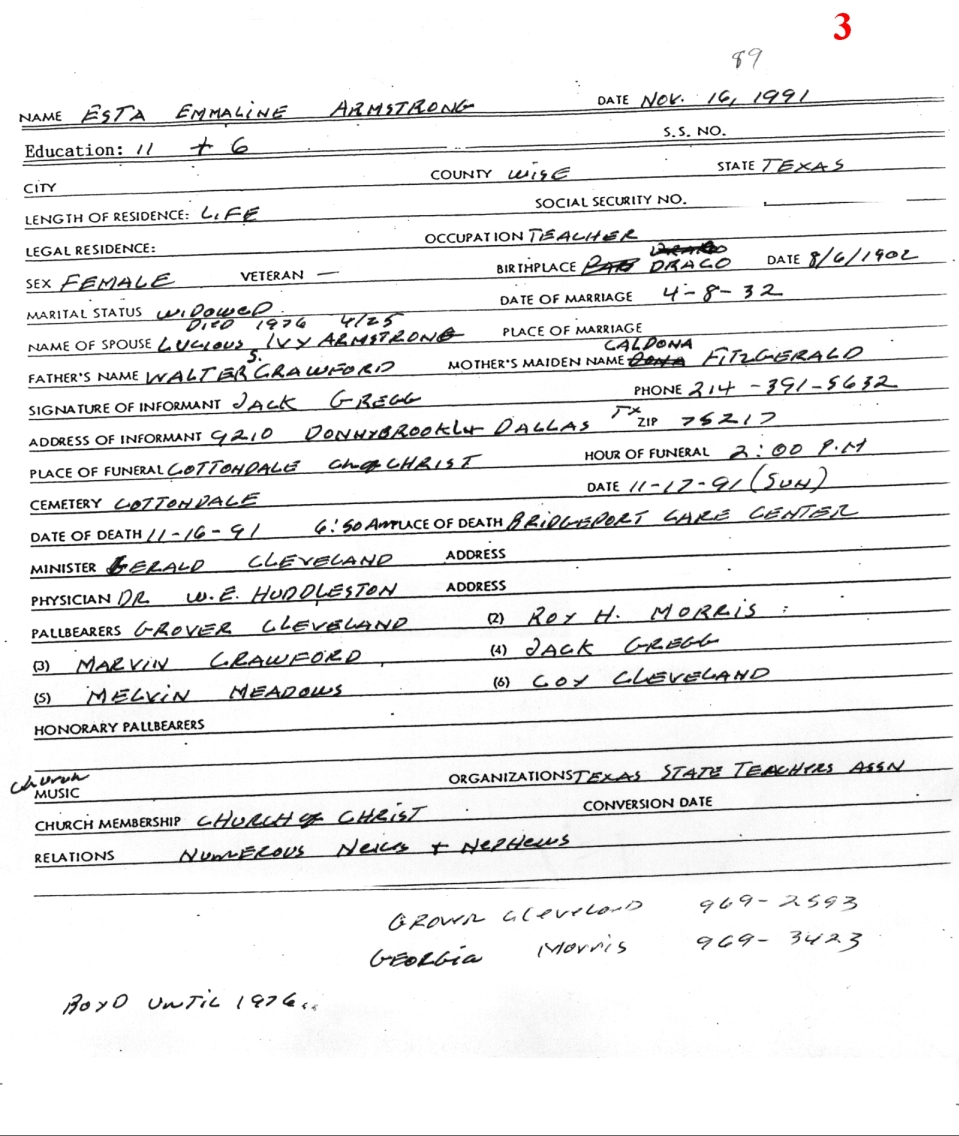 3
89
NAME ESTA EMMALINE ARMSTRONG DATE NOV. 16, 1991
Education: 11 + 6 S.S. NO.
CITY COUNTY WISE STATE TEXAS
LENGTH OF RESIDENCE: LIFE SOCIAL SECURITY NO.
LEGAL RESIDENCE: OCCUPATION TEACHER
SEX FEMALE VETERAN — BIRTHPLACE DRACO DATE 8/6/1902
MARITAL STATUS WIDOWED DATE OF MARRIAGE 4-8-32
DIED 1976 4/25
NAME OF SPOUSE LUCIOUS IVY ARMSTRONG PLACE OF MARRIAGE
FATHER'S NAME WALTER S. CRAWFORD MOTHER'S MAIDEN NAME CALDONA FITZGERALD
SIGNATURE OF INFORMANT JACK GREGG PHONE 214-391-5632
ADDRESS OF INFORMANT 9210 DONNYBROOK LN DALLAS TX ZIP 75217
PLACE OF FUNERAL COTTONDALE Ch of CHRIST HOUR OF FUNERAL 2:00 P.M
CEMETERY COTTONDALE DATE 11-17-91 (SUN)
DATE OF DEATH 11-16-91 6:50 AM PLACE OF DEATH BRIDGEPORT CARE CENTER
MINISTER GERALD CLEVELAND ADDRESS
PHYSICIAN DR W.E. HUDDLESTON ADDRESS
PALLBEARERS GROVER CLEVELAND (2) ROY H. MORRIS
(3) MARVIN CRAWFORD (4) JACK GREGG
(5) MELVIN MEADOWS (6) COY CLEVELAND
HONORARY PALLBEARERS
church
MUSIC ORGANIZATIONS TEXAS STATE TEACHERS ASSN
CHURCH MEMBERSHIP CHURCH of CHRIST CONVERSION DATE
RELATIONS NUMEROUS NEICES + NEPHEWS
Cleveland 969-2593
GEORGIA Morris 969-3423
BOYD UNTIL 1976..